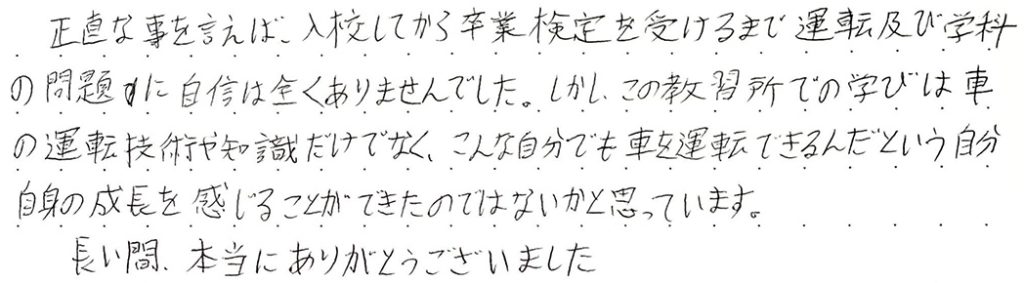 正直な事を言えば、入校してから卒業検定を受けるまで運転及び学科
の問題に自信は全くありませんでした。しかし、この教習所での学びは車
の運転技術や知識だけでなく、こんな自分でも車を運転できるんだという自分
自身の成長を感じることができたのではないかと思っています。
長い間、本当にありがとうございました